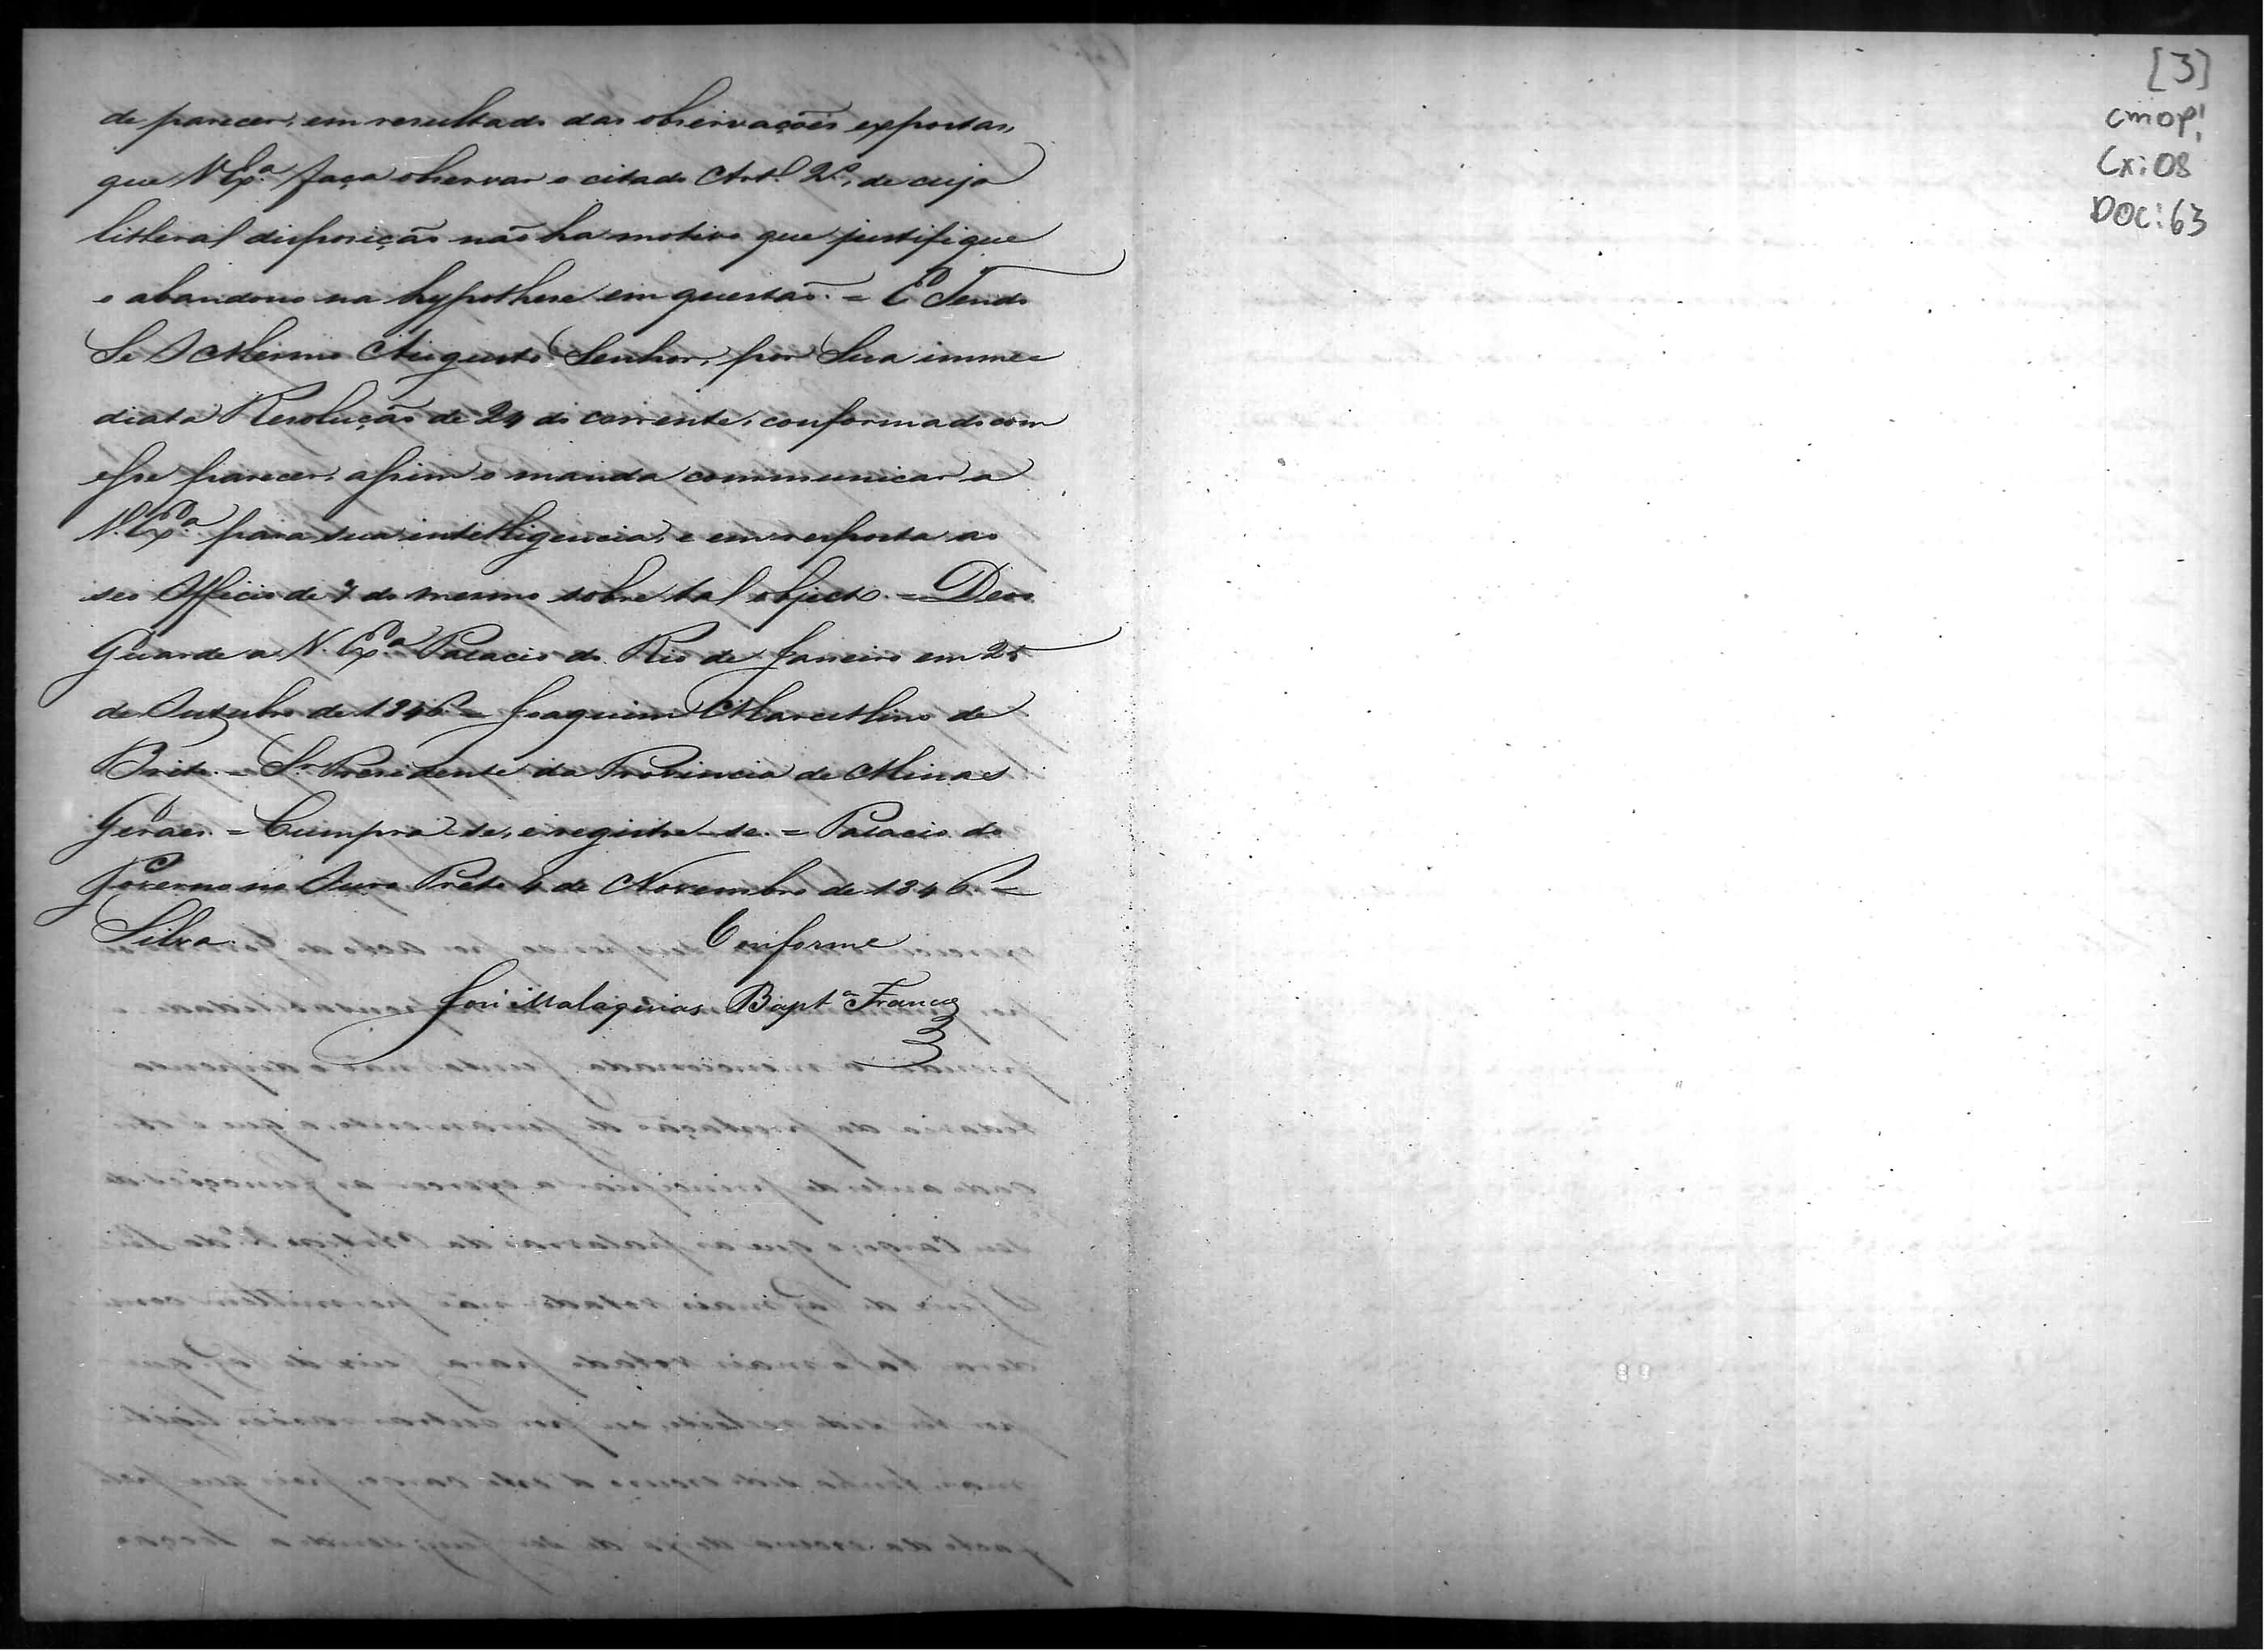 de parecer, em resultado das observações expostas,
que V. Exª. faça observar o citado Artº. 2º, de cuja
litteral disposição não ha motivo que justifique
o abandono na hypothese em questão. = E Tendo
Se O Mesmo Augusto Senhor, por Sua imme=
diata Resolução de 24 do corrente, conformado com
esse parecer, assim o manda communicar a
V. Exª. para sua intelligencia, e em resposta ao
seo Officio de 7 do mesmo sobre tal objecto. = Deos
Guarde a V. Exª. Palacio do Rio de Janeiro em 25
de Outubro de 1846 = Joaquim Marcellino de
Brito. = Sr. Presidente da Provincia de Minas
Geraes. = Cumpra-se, e registre-se. = Palacio do
Governo no Ouro Preto 4 de Novembro de 1846 =
Silva.
Conforme
José Malaquias Baptª. Franco
[3]
CMOP!
Cx: 08
DOC: 63